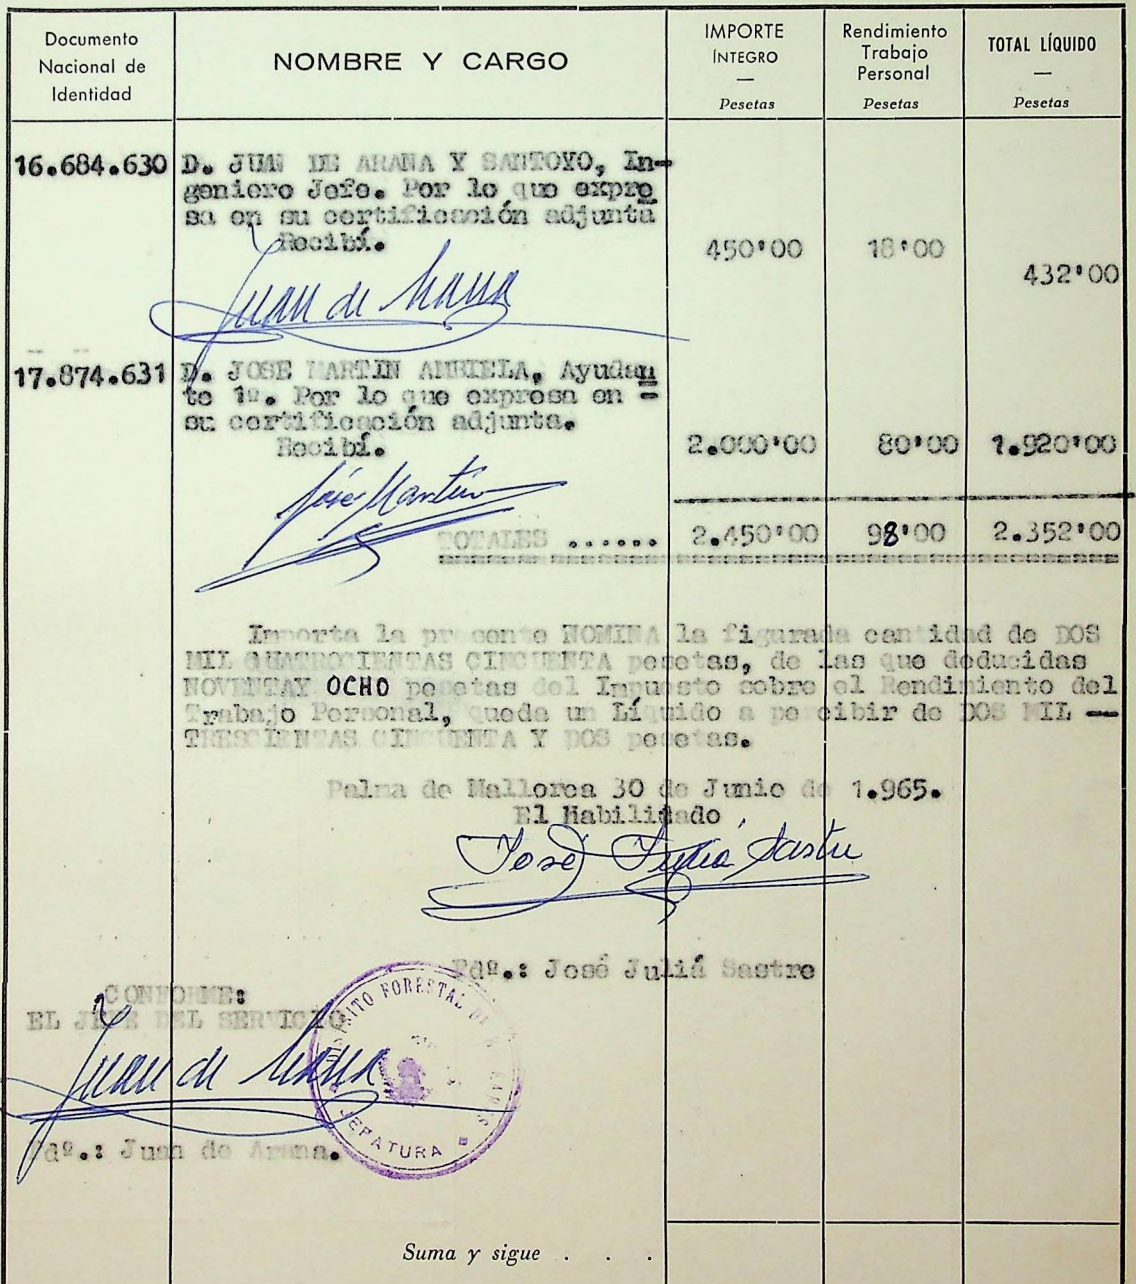 Documento
Nacional de
Identidad
NOMBRE Y CARGO
IMPORTE
ÍNTEGRO
—
Pesetas
Rendimiento
Trabajo
Personal
Pesetas
TOTAL LÍQUIDO
—
Pesetas
16.684.630 D. JUAN DE ARANA Y SANTOYO, In-
geniero Jefe. Por lo que expre
sa en su certificación adjunta
Recibí.
450'00 18'00
432'00
Juan de Arana
17.874.631 D. JOSE MARTIN AMBIELA, Ayudan
te 1º. Por lo que expresa en -
su certificación adjunta.
Recibí. 2.000'00 80'00 1.920'00
José Martín
TOTALES ...... 2.450'00 98'00 2.352'00
Importa la presente NOMINA la figurada cantidad de DOS
MIL CUATROCIENTAS CINCUENTA pesetas, de las que deducidas
NOVENTAY OCHO pesetas del Impuesto sobre el Rendimiento del
Trabajo Personal, queda un Líquido a percibir de DOS MIL --
TRESCIENTAS CINCUENTA Y DOS pesetas.
Palma de Mallorca 30 de Junio de 1.965.
El Habilitado
José Juliá Sastre
Fdº.: José Juliá Sastre
CONFORME:
EL JEFE DEL SERVICIO
DISTRITO FORESTAL DE BALEARES
JEFATURA
Juan de Arana
Fdº.: Juan de Arana.
Suma y sigue . . .